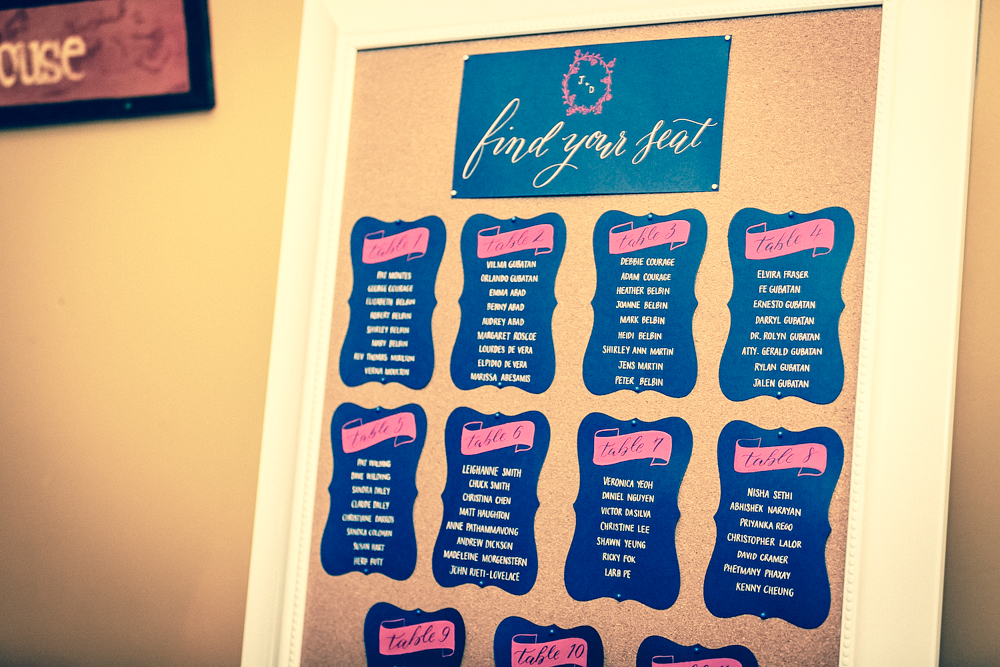 ouse
J + D
find your seat
table 1
PAT MONTES
GEORGE COURAGE
ELIZABETH BELBIN
ROBERT BELBIN
SHIRLEY BELBIN
MARY BELBIN
REV THOMAS MOULTON
VERNA MOULTON
table 2
VILMA GUBATAN
ORLANDO GUBATAN
EMMA ABAD
BENNY ABAD
AUDREY ABAD
MARGARET ROSCOE
LOURDES DE VERA
ELPIDIO DE VERA
MARISSA ABESAMIS
table 3
DEBBIE COURAGE
ADAM COURAGE
HEATHER BELBIN
JOANNE BELBIN
MARK BELBIN
HEIDI BELBIN
SHIRLEY ANN MARTIN
JENS MARTIN
PETER BELBIN
table 4
ELVIRA FRASER
FE GUBATAN
ERNESTO GUBATAN
DARRYL GUBATAN
DR. ROLYN GUBATAN
ATTY. GERALD GUBATAN
RYLAN GUBATAN
JALEN GUBATAN
table 5
PAT WALDING
DAVE WALDING
SANDRA DALEY
CLAUDE DALEY
CHRISTIANE
SANDRA COLEMAN
SUSAN HART
HERB
table 6
LEIGHANNE SMITH
CHUCK SMITH
CHRISTINA CHEN
MATT HAUGHTON
ANNE PATHAMMAVONG
ANDREW DICKSON
MADELEINE MORGENSTERN
JOHN RIETI-LOVELACE
table 7
VERONICA YEOH
DANIEL NGUYEN
VICTOR DASILVA
CHRISTINE LEE
SHAWN YEUNG
RICKY FOK
LARB PE
table 8
NISHA SETHI
ABHISHEK NARAYAN
PRIYANKA REGO
CHRISTOPHER LALOR
DAVID CRAMER
PHETMANY PHAXAY
KENNY CHEUNG
table 9
table 10